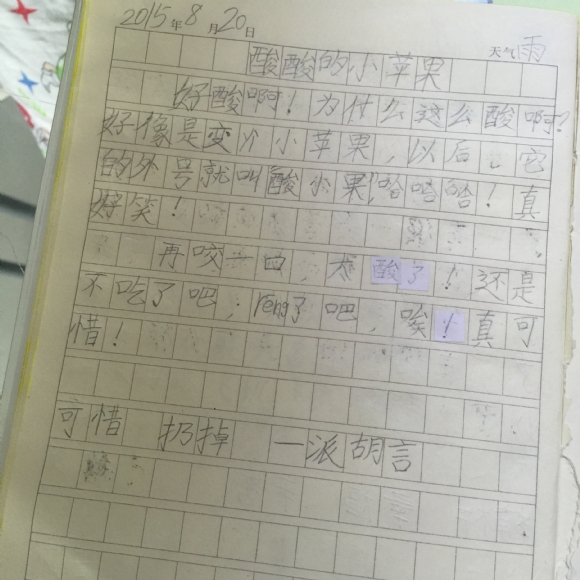 2015年8月20日
天气雨
酸酸的小苹果
好酸啊！为什么这么酸啊？
好像是变小小苹果，以后，它
的外号就叫酸小果！哈哈哈！真
好笑！
再咬一口，太酸了！还是
不吃了吧，reng了吧，唉！真可
惜！
可惜 扔掉 一派胡言